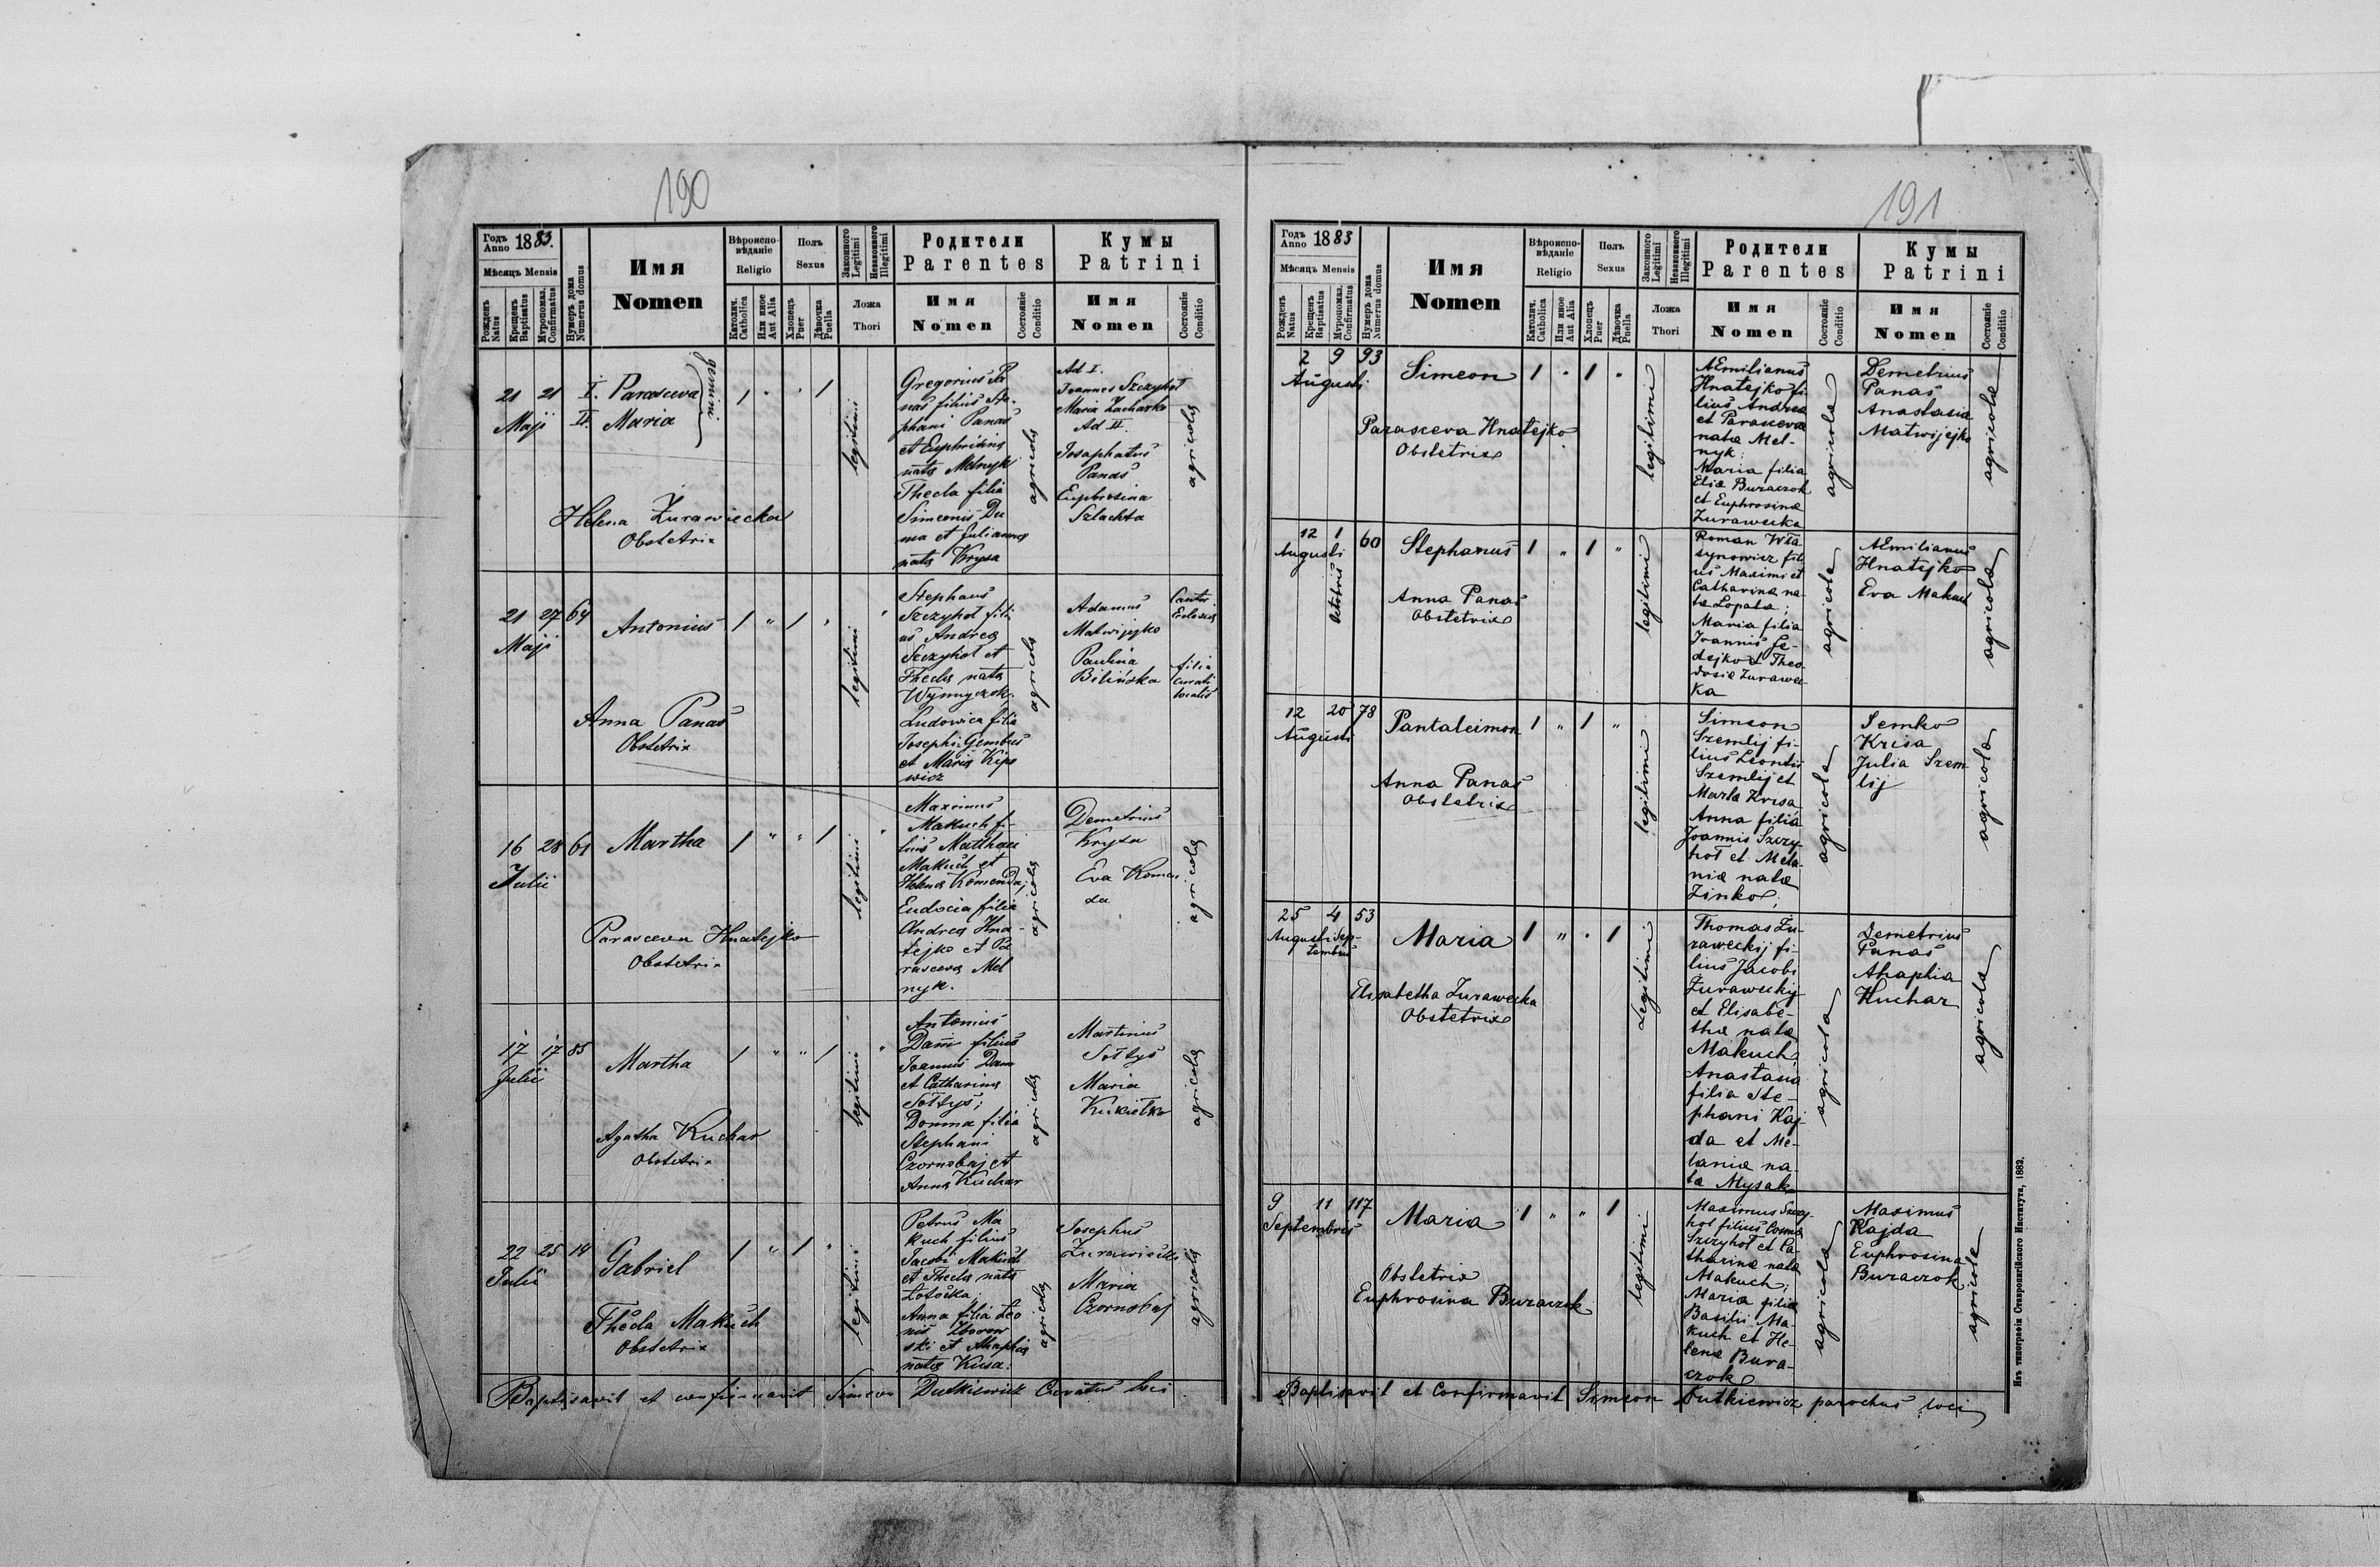 190
Годъ Anno 1883.
Мѣсяцъ Mensis
Рожденъ Natus
Крещенъ Baptisatus
Мѵропомаз. Confirmatus
Нумеръ дома Numerus domus
Имя
Nomen
Вѣроиспо-
вѣданіе
Religio
Католич. Catholica
Или иное Aut Alia
Полъ
Sexus
Хлопецъ Puer
Дѣвочка Puella
Законного Legitimi
Незаконного Illegitimi
Ложа
Thori
Родители
Parentes
Имя
Nomen
Состояніе Conditio
Кумы
Patrini
Имя
Nomen
Состояніе Conditio
21 21
Maji
I. Parasceva
II. Maria
gemini
1 " " 1
legitimi
Helena Zurawiecka
Obstetrix
Gregorius Pa
nas filius Ste-
phani Panas
et Euphrosina
nata Melnyk
Thecla filia
Simeonis Du
ma et Julianna
nata Krysa
agricola
Ad I.
Joannes Szczyhoł
Maria Zacharko
Ad II.
Josaphatus
Panas
Euphrosina
Szlachta
agricola
21 27 64
Maji
Antonius
1 " 1 "
legitimi
Anna Panas
Obstetrix
Stephanus
Szczyhoł fili
us Andrea
Szczyhoł et
Thecla nata
Ludowica filia
Josephi Gembus
et Maria Kipo
wicz
agricola
Adamus
Matwijejko
Paulina
Bilińska
Cantor
Eclesia
filia
curati
localis
16 28 61
Julii
Martha
1 " " 1
legitimi
Parasceva Hnatejko
Obstetrix
Maximus
Makuch fi-
lius Matthaei
Makuch et
Helena Komenda;
Eudocia filia
Andrea Hna-
tejko et Pa
rasceva Mel
nyk.
agricola
Demetrius
Krysa
Eva Komen
da
agricola
17 17 85
Julii
Martha
1 " " 1
legitimi
Agatha Kuchar
Obstetrix
Antonius
Dam filius
Joannis Dam
et Catharina
Sołtys;
Domna filia
Stephani
Czornobaj et
Anna Kuchar
agricola
Martinus
Sołtys
Maria
Kukiełko
agricola
22 25 14
Julii
Gabriel
1 " 1 "
legitimi
Thecla Makuch
Obstetrix
Petrus Ma
kuch filius
Jacobi Makuch
et Thecla nata
Łotocka;
Anna filia Leo
nis Zborow
ski et Ahaphia
nata Kusa.
agricola
Josephus
Maria
Czornobaj
agricola
Baptisavit et confirmavit Simeon Dutkiewicz Curatus loci.
191
Годъ Anno 1883
Мѣсяцъ Mensis
Рожденъ Natus
Крещенъ Baptisatus
Мѵропомаз. Confirmatus
Нумеръ дома Numerus domus
Имя
Nomen
Вѣроиспо-
вѣданіе
Religio
Католич. Catholica
Или иное Aut Alia
Полъ
Sexus
Хлопецъ Puer
Дѣвочка Puella
Законного Legitimi
Незаконного Illegitimi
Ложа
Thori
Родители
Parentes
Имя
Nomen
Состояніе Conditio
Кумы
Patrini
Имя
Nomen
Состояніе Conditio
2 9 93
Augusti
Simeon
1 " 1 "
legitimi
Parasceva Hnatejko
Obstetrix
AEmilianus
Hnatejko fi-
lius Andrea
et Parasceva
nata Mel-
nyk;
Maria filia
Eliæ Buraczok
et Euphrosina
Zurawecka
agricola
Demetrius
Panas
Anastasia
Matwijejko
agricola
12 1 60
Augusti Octobris
Stephanus
1 " 1 "
legitimi
Anna Panas
Obstetrix
Roman Wła
synowicz fili
us Maximi et
Catharina na-
ta Lopata;
Maria filia
Joannis Fe-
dejko et Theo-
dosia Zurawec-
ka
agricola
AEmilianus
Hnatejko
Eva Makuch
agricola
12 20 78
Augusti
Pantaleimon
1 " 1 "
legitimi
Anna Panas
Obstetrix
Simeon
Szemlij fi-
lius Leontii
Szemlij et
Marta Krisa
Anna filia
Joannis Szczy-
hoł et Mela-
niæ nata
Zinko;
agricola
Semko
Krisa
Julia Szem
lij
agricola
25 4 53
Augusti Sep-
tembris
Maria
1 " " 1
Legitimi
Elisabetha Zurawecka
Obstetrix
Thomas Zu-
raweckij fi-
lius Jacobi
Zuraweckij
et Elisabe-
tha nata
Makuch;
Anastasia
filia Ste-
phani Kaj-
da et Me-
lania na-
ta Mysak
agricola
Demetrius
Panas
Ahaphia
Kuchar
agricola
9 11 117
Septembris
Maria
1 " " 1
legitimi
Obstetrix
Euphrosina Buraczok
Maximus Szczy-
hoł filius Cosma
Szczyhoł et Ca-
tharina nata
Makuch;
Maria filia
Basilii Ma-
kuch et He-
lena Bura-
czok
agricola
Maximus
Kajda
Euphrosina
Buraczok
agricola
Baptisavit et Confirmavit Simeon Dutkiewicz parochus loci
Изъ типографіи Ставропигійского Института, 1882.